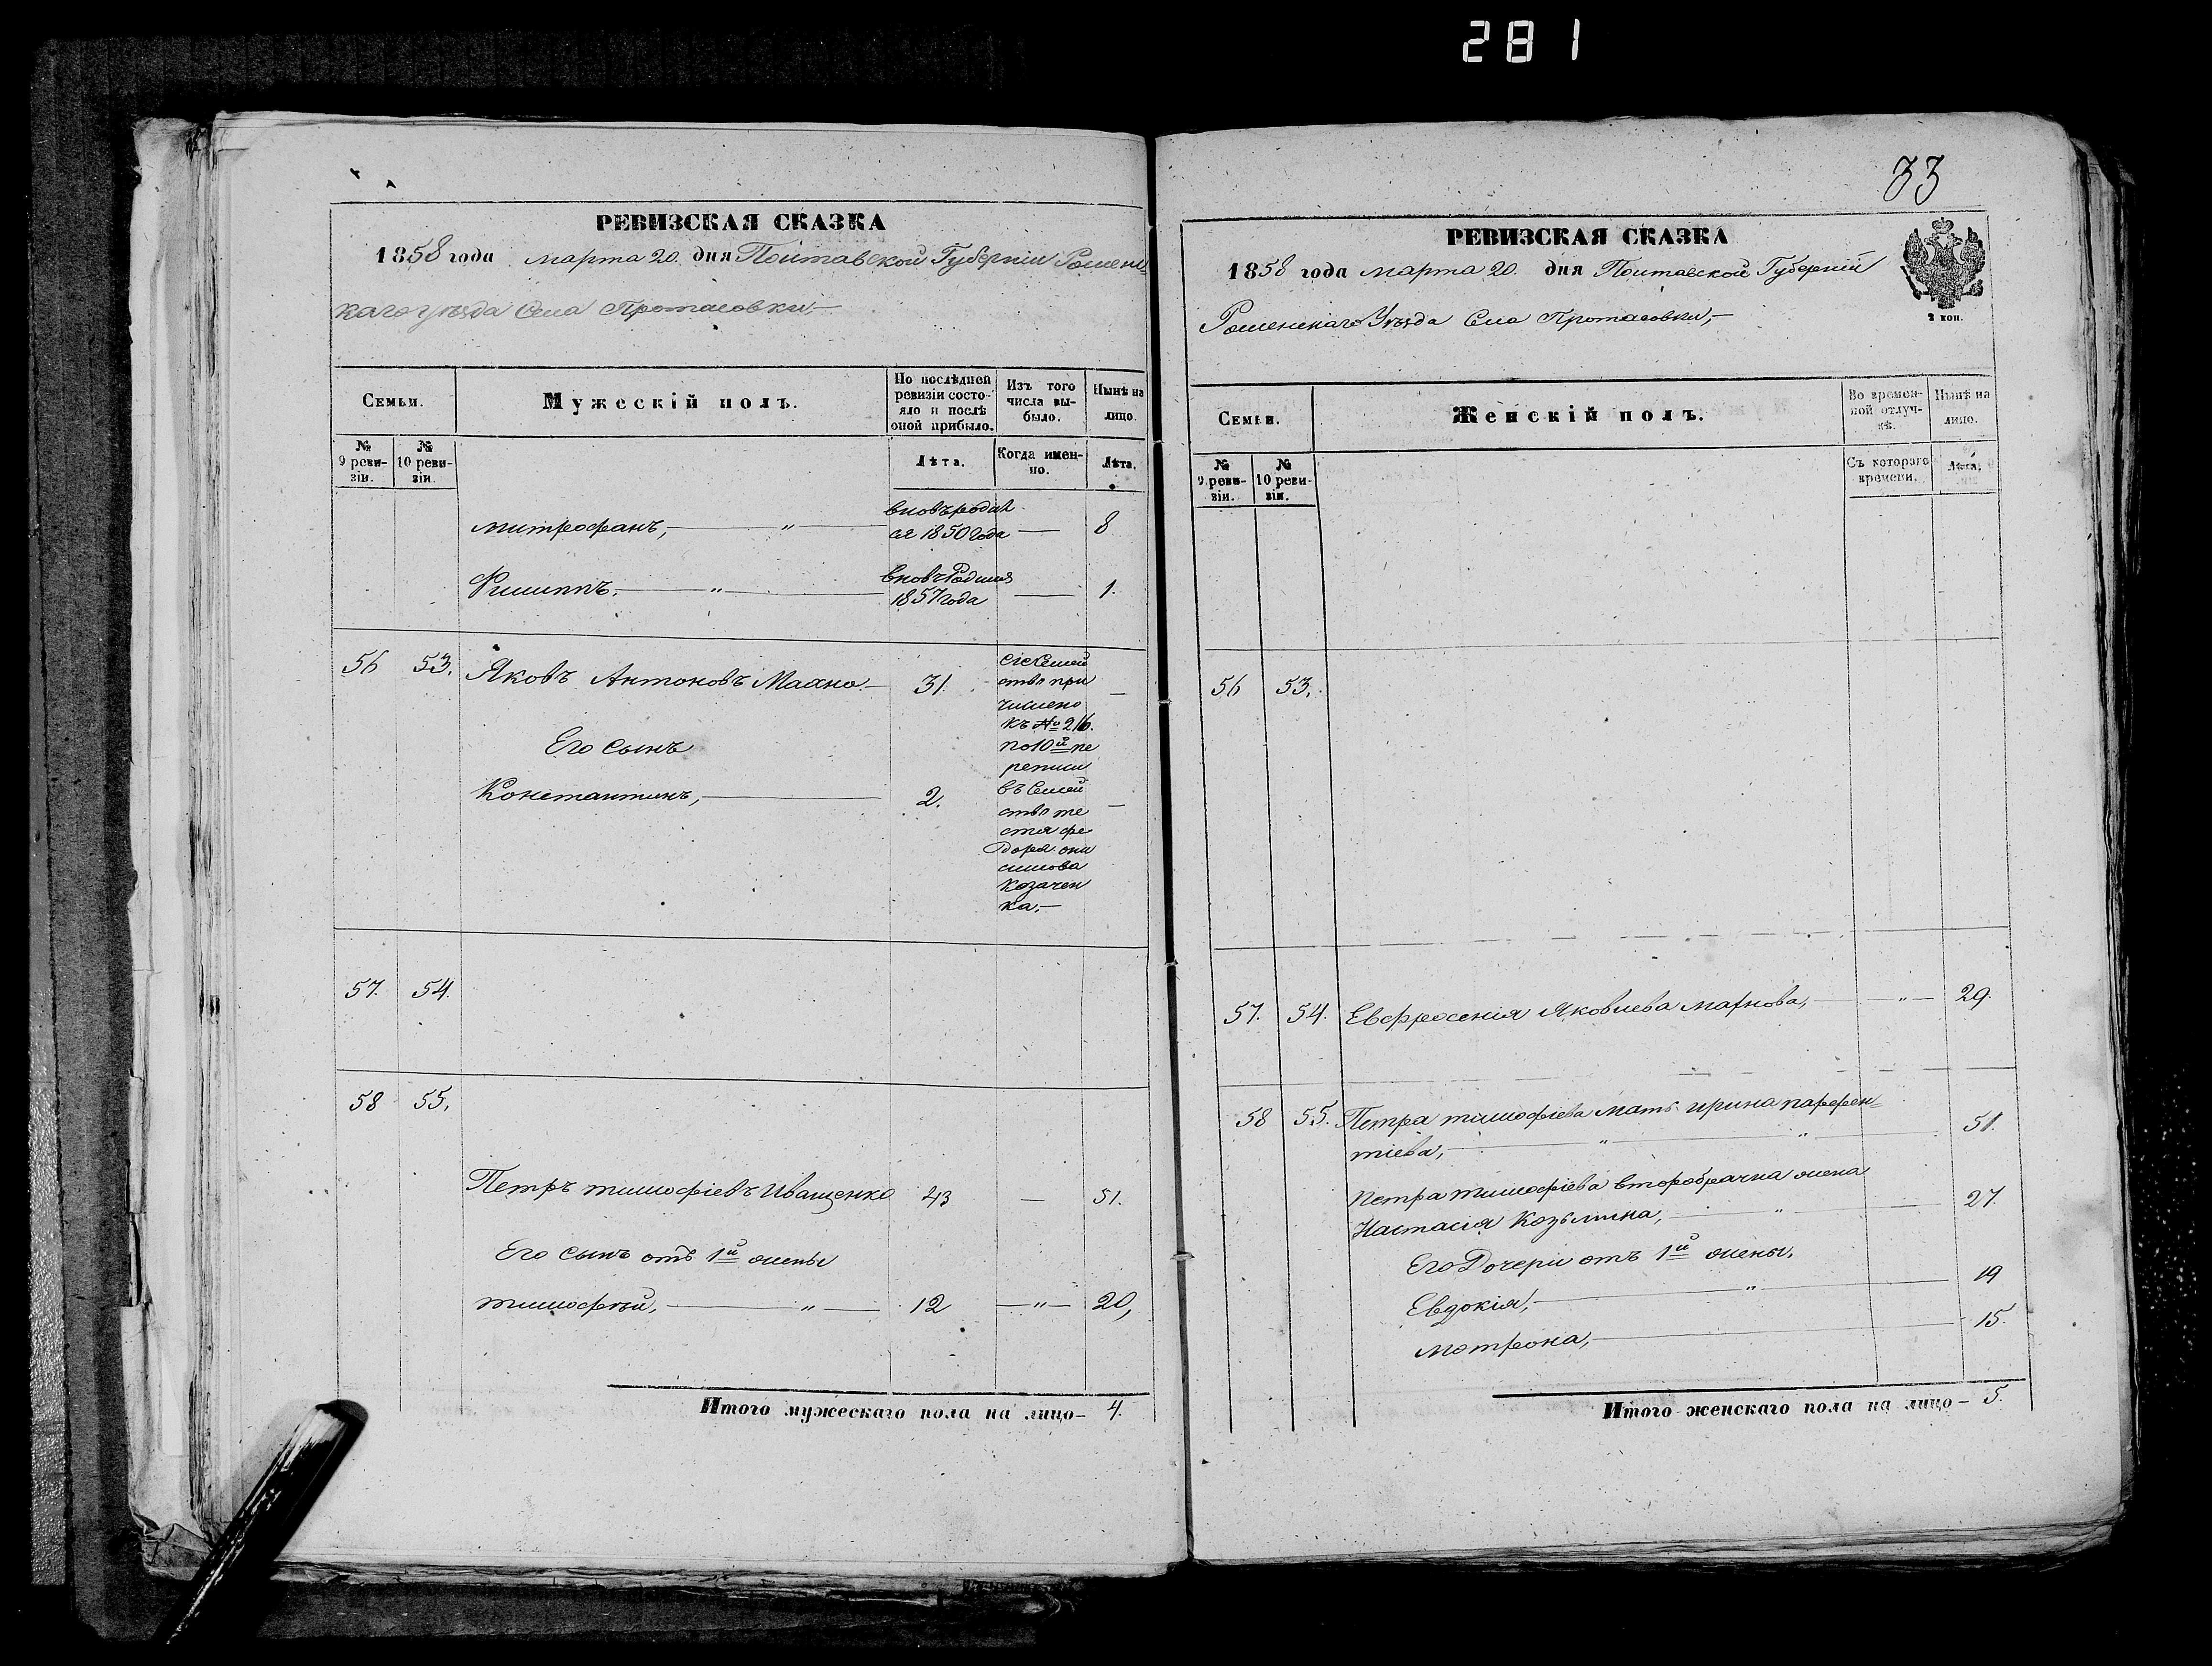 281
РЕВИЗСКАЯ СКАЗКА
1858 года марта 20. дня Полтавской Губерніи Роменс
каго уѣзда Села Протасовки,
Семьи.
Мужескій полъ.
По послѣдней ревизіи состояло и послѣ оной прибыло.
Изъ того числа выбыло.
Нынѣ на лицо.
№ 9 ревизіи.
№ 10 ревизіи.
Лѣта.
Когда именно.
Лѣта.
Митрофанъ, — " — вновь родил
ся 1850 года — 8
Филиппъ. — " — вновь Родился
1857 года — 1.
56 53. Яковъ Антоновъ 31. —
Его сынъ
Константинъ, — 2. —
сіе Семей
ство при
числено
къ № 216.
по 10й пе
реписи
въ Семей
ство те
стя Фе
дора Они
симова
Козачен
ка. —
57. 54.
58 55.
Петръ Тимофіевъ Иващенко 43 — 51.
Его сынъ отъ 1й жены
Тимофѣй, — " — 12 — " — 20,
Итого мужескаго пола на лицо — 4.
33
РЕВИЗСКАЯ СКАЗКА
1858 года марта 20. дня Полтавской Губерній
Роменскаго Уѣзда Села Протасовки, —
2 коп.
Семьи.
Женскій полъ.
Во временной отлучкѣ.
Нынѣ на лицо.
№ 9 ревизіи.
№ 10 ревизіи.
Съ котораго времени.
Лѣта.
56 53.
57. 54. Евфросенія Яковлева — " — 29.
58 55. Петра Тимофіева мать Ирина Парфен=
тіева, — " — " — 51.
Петра Тимофіева второбрачна жена
Настасія Козьмина, — " — 27.
Его Дочери отъ 1й жены.
Евдокія, — " — 19
Мотрона, — 15.
Итого женскаго пола на лицо — 5.